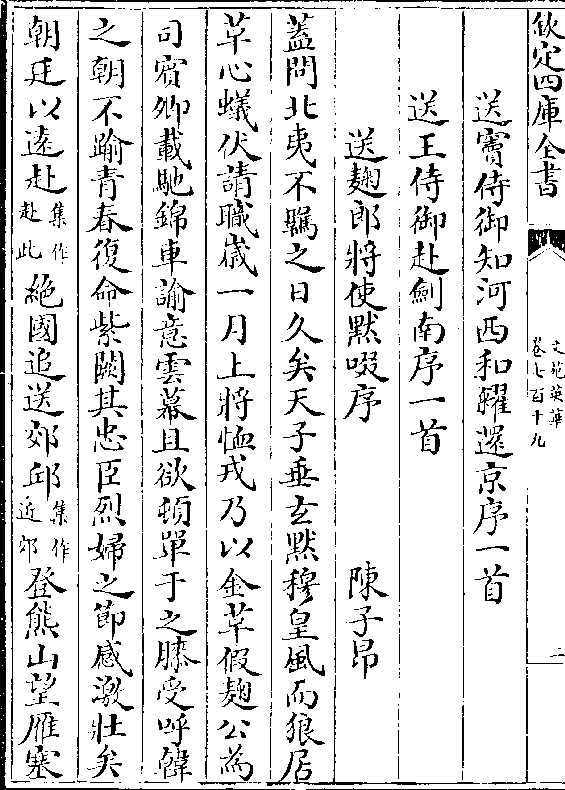 欽定四庫全書
文苑英華
卷七百十九
二
送竇侍御知河西和糴還京序一首
送王侍御赴劍南序一首
送麹郎將使默啜序 陳子昂
蓋問北夷不羈之日久矣天子垂玄默穆皇風而狼居
革心蟻伏請職歲一月上將恤戎乃以金草假麹公為
司賓卿載馳錦車諭意雲幕且欲頓單于之膝受呼韓
之朝不踰青春復命紫闕其忠臣烈婦之節感激壯矣
朝廷以遠赴集作赴此絕國追送郊邱集作近郊登熊山望雁塞